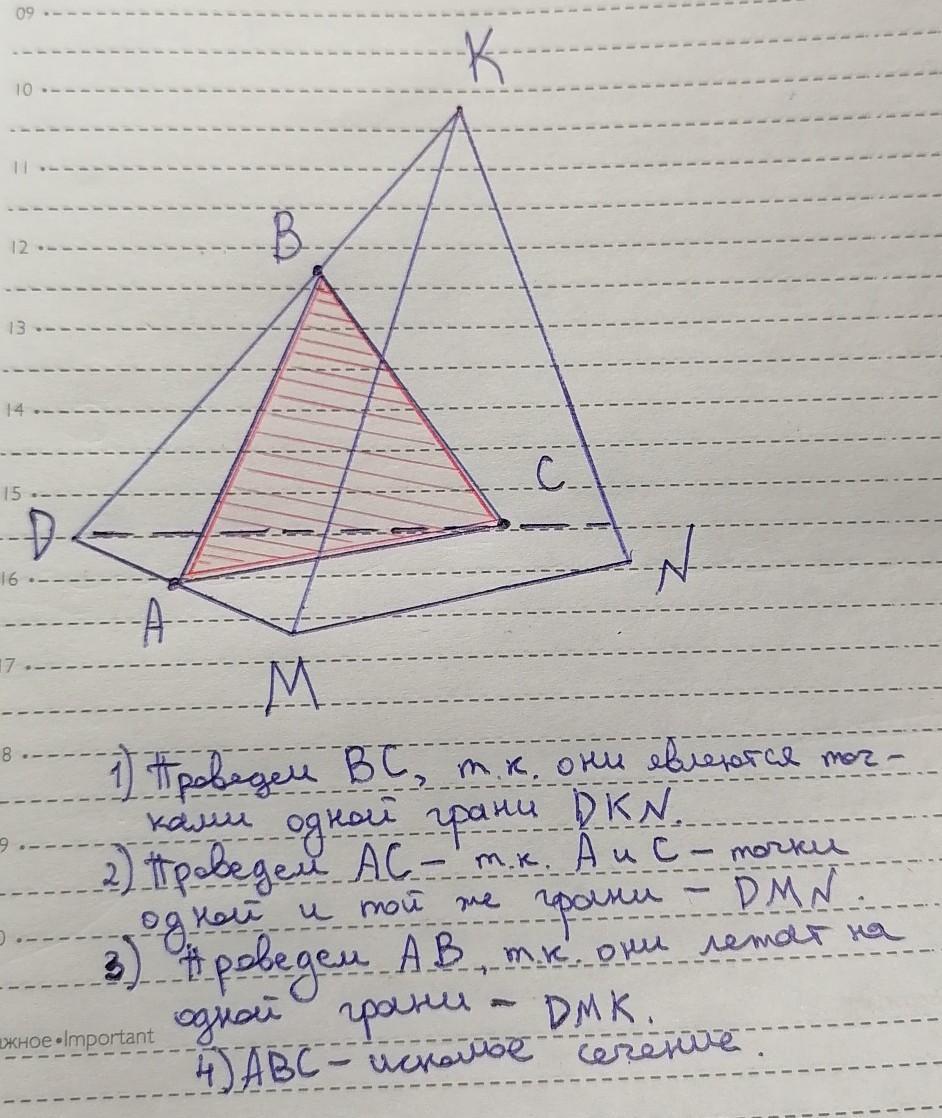 09
K
10
11
B
12
13
14
C
15
D
N
16
A
17
M
8
1) Проведем BC, т.к. они явлеются точ-
ками одной грани DKN.
9
2) Проведем AC – т.к. A и C – точки
одной и той же грани – DMN.
0
3) Проведем AB, т.к. они лежат на
одной грани – DMK.
жное•Important
4) ABC – искомое сечение.